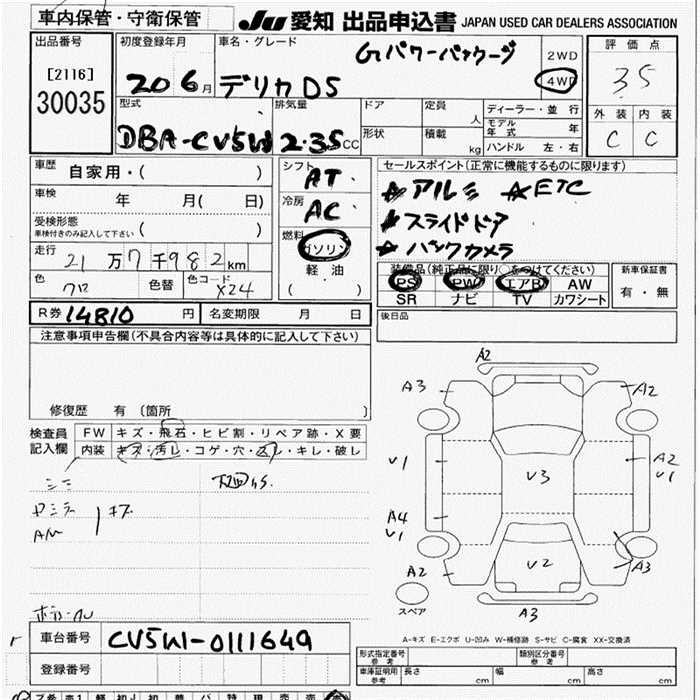 車内保管・守衛保管
JU 愛知 出品申込書 JAPAN USED CAR DEALERS ASSOCIATION
出品番号
[2116]
30035
初度登録年月
20 6月
車名・グレード
Gパワーパッケージ
デリカD5
2WD
4WD
評価点
3.5
外装 内装
C C
型式
DBA-CV5W
排気量
2.35cc
ドア
形状
定員
人
積載
kg
ディーラー・並行
モデル年式 年
ハンドル 左・右
車歴 自家用・( )
車検 年 月( 日)
受検形態
車検付きのみ記入して下さい ( )
走行 21万7千982km
色
色替
色コード
X24
シフト AT
冷房 AC
燃料
ガソリン
軽油
( )
セールスポイント(正常に機能するものに限ります)
★アルミ ★ETC
★スライドドア
★バックカメラ
装備品(純正品に限り○をつけてください)
PS PW エアB AW
SR ナビ TV カワシート
新車保証書
有・無
R券 14810円
名変期限 月 日
後日品
注意事項申告欄(不具合内容等は具体的に記入して下さい)
修復歴 有 〔箇所 〕
検査員記入欄
FW キズ・飛石・ヒビ割・リペア跡・X要
内装 キズ・汚レ・コゲ・穴・スレ・キレ・破レ
キズ
A2
A3
A2
V1
V3
A2
V1
A4
V1
A2
V2
A3
A3
スペア
A-キズ E-エクボ U-凹み W-補修跡 S-サビ C-腐食 XX-交換済
車台番号 CV5W-0111649
登録番号
形式指定番号 参考
類別区分番号 参考
車庫証明用 参考
長さ cm
幅 cm
高さ cm